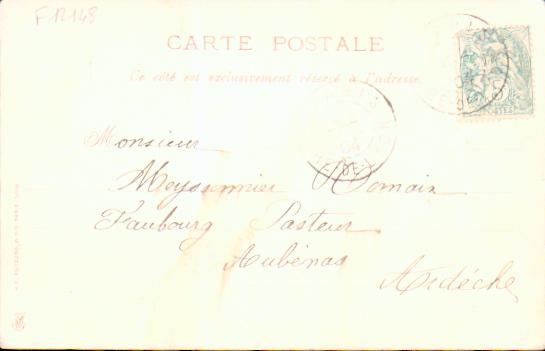 FR148
CARTE POSTALE
Ce côté est exclusivement réservé à l'adresse
PARIS
04
Monsieur
Meyssonnier Romain
Faubourg Pasteur
Aubénas
Ardèche